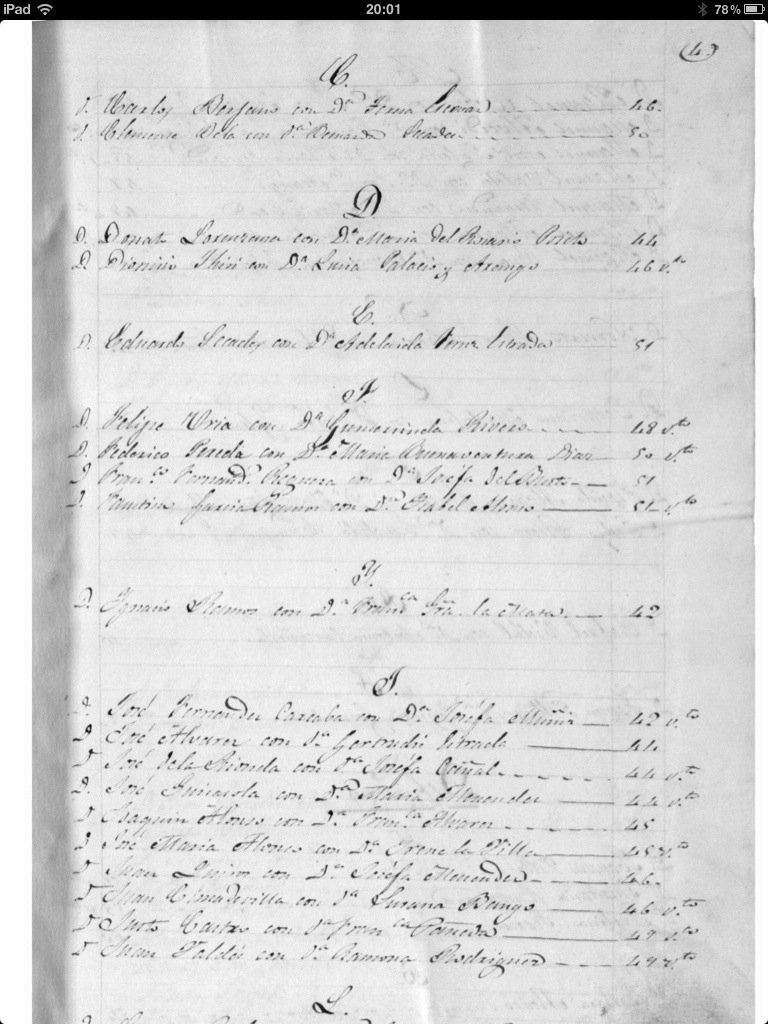 iPad 20:01 78%
43
C.
D. Carlos Berjano con D.ª 46.
D. Clemente con D.ª Bernarda 50
D.
D. Donato Lorenzana con D.ª Maria del Rosario Prieto 44
D. Dionisio con D.ª Luisa Palacio y Arango 46 v.to
E.
D. Eduardo Secades con D.ª Adelaida Estrada 51
F.
D. Felipe Uria con D.ª Gumersinda Rivero 48 v.to
D. Federico Pereda con D.ª Maria Buenaventura Diaz 50 v.to
D. Fran.co Fernand.z Reguera con D.ª Josefa del Busto 51
D. Faustino Garcia Ramos con D.ª Isabel Alonso 51 v.to
Y.
D. Ygnacio Ramos con D.ª Fran.ca la Mata 42
J.
D. José Fernandez Carcaba con D.ª Josefa Muñiz 42 v.to
D. José Alvarez con D.ª Gertrudis Estrada 44
D. José de la Rionda con D.ª Josefa 44 v.to
D. José Guisasola con D.ª Maria Menendez 44 v.to
D. Joaquin Alonso con D.ª Fran.ca Alvarez 45
D. José Maria Alonso con D.ª Irene la Villa 45 v.to
D. Juan Quiros con D.ª Josefa Menendez 46.
D. Juan Cimadevilla con D.ª Susana Bango 46 v.to
D. Justo Castro con D.ª Fran.ca Cañeda 49 v.to
D. Juan Valdés con D.ª Ramona Rodriguez 49 v.to
L.